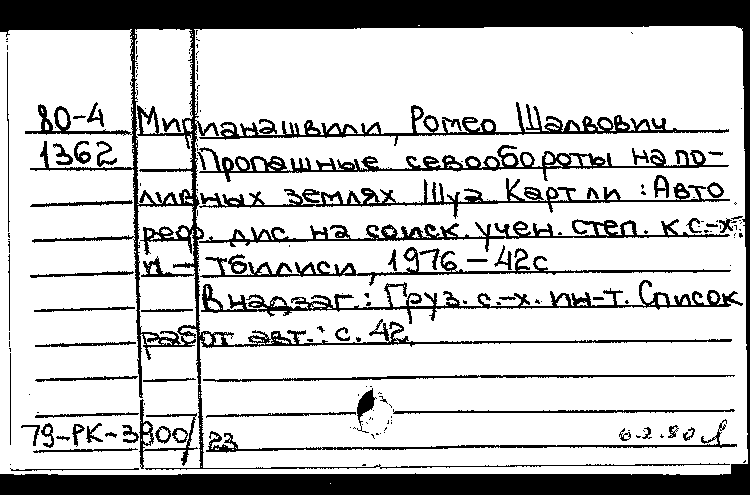 80-4 Мирианашвили, Ромео Шалвович.
1362 Пропашные севообороты на по-
ливных землях Шуа Картли : Авто
реф. дис. на соиск. учен. степ. к.с-х.
н. – Тбилиси, 1976. – 42с
В надзаг.: Груз. с.-х. ин-т. Список
работ авт.: с. 42.
79-РК-3900/23 6.2.80